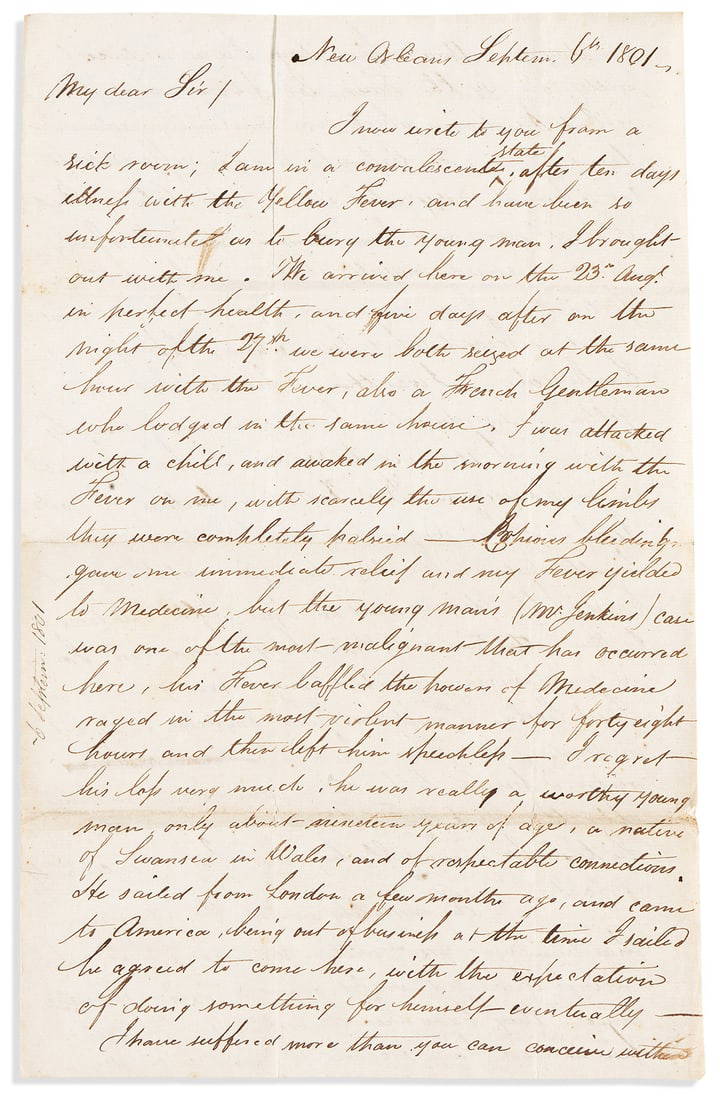 New Orleans Septem. 6th 1801
My dear Sir /
I now write to you from a
sick room; I am in a convalescent state, after ten days
illness with the Yellow Fever, and have been so
unfortunate as to bury the young man, I brought
out with me. We arrived here on the 23rd Augt.
in perfect health, and five days after on the
night of the 27th we were both seized at the same
hour with the Fever, also a French Gentleman
who lodged in the same house. I was attacked
with a chill, and awaked in the morning with the
Fever on me, with scarcely the use of my limbs
they were completely palsied — Copious bleeding
gave me immediate relief and my Fever yielded
to Medecine, but the young man's (Mr. Jenkins) case
was one of the most malignant that has occurred
here, his Fever baffled the powers of Medecine
raged in the most violent manner for forty eight
hours and then left him speechless — I regret
his loss very much, he was really a worthy young
man, only about nineteen years of age, a native
of Swansea in Wales, and of respectable connections.
He sailed from London a few months ago, and came
to America, being out of business at the time I sailed
he agreed to come here, with the expectation
of doing something for himself eventually —
I have suffered more than you can conceive within
6 Septem: 1801